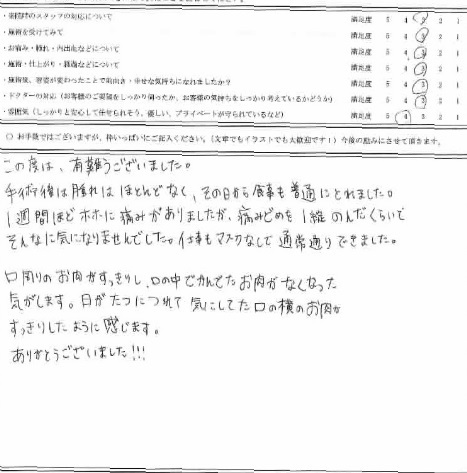 ・来院時のスタッフの対応について 満足度 5 4 3 2 1
・施術を受けてみて 満足度 5 4 3 2 1
・お痛み・腫れ・内出血などについて 満足度 5 4 3 2 1
・施術・仕上がり・経過などについて 満足度 5 4 3 2 1
・施術後、容姿が変わったことで前向き・幸せな気持ちになれましたか? 満足度 5 4 3 2 1
・ドクターの対応(お客様のご要望をしっかり伺ったか、お客様の気持ちをしっかり考えているかどうか) 満足度 5 4 3 2 1
・雰囲気(しっかりと安心して任せられそう、優しい、プライベートが守られているなど) 満足度 5 4 3 2 1
○ お手数ではございますが、枠いっぱいにご記入ください。(文章でもイラストでも大歓迎です!)今後の励みにさせて頂きます。
この度は、有難うございました。
手術後は腫れは ほとんどなく、その日から食事も普通にとれました。
1週間ほどホホに痛みがありましたが、痛みどめを1錠のんだくらいで
そんなに気になりませんでした。仕事もマスクなしで通常通りできました。
口周りのお肉がすっきりし、口の中でかんでたお肉がなくなった
気がします。日がたつにつれて 気にしてた口の横のお肉が
すっきりしたように感じます。
ありがとうございました!!!